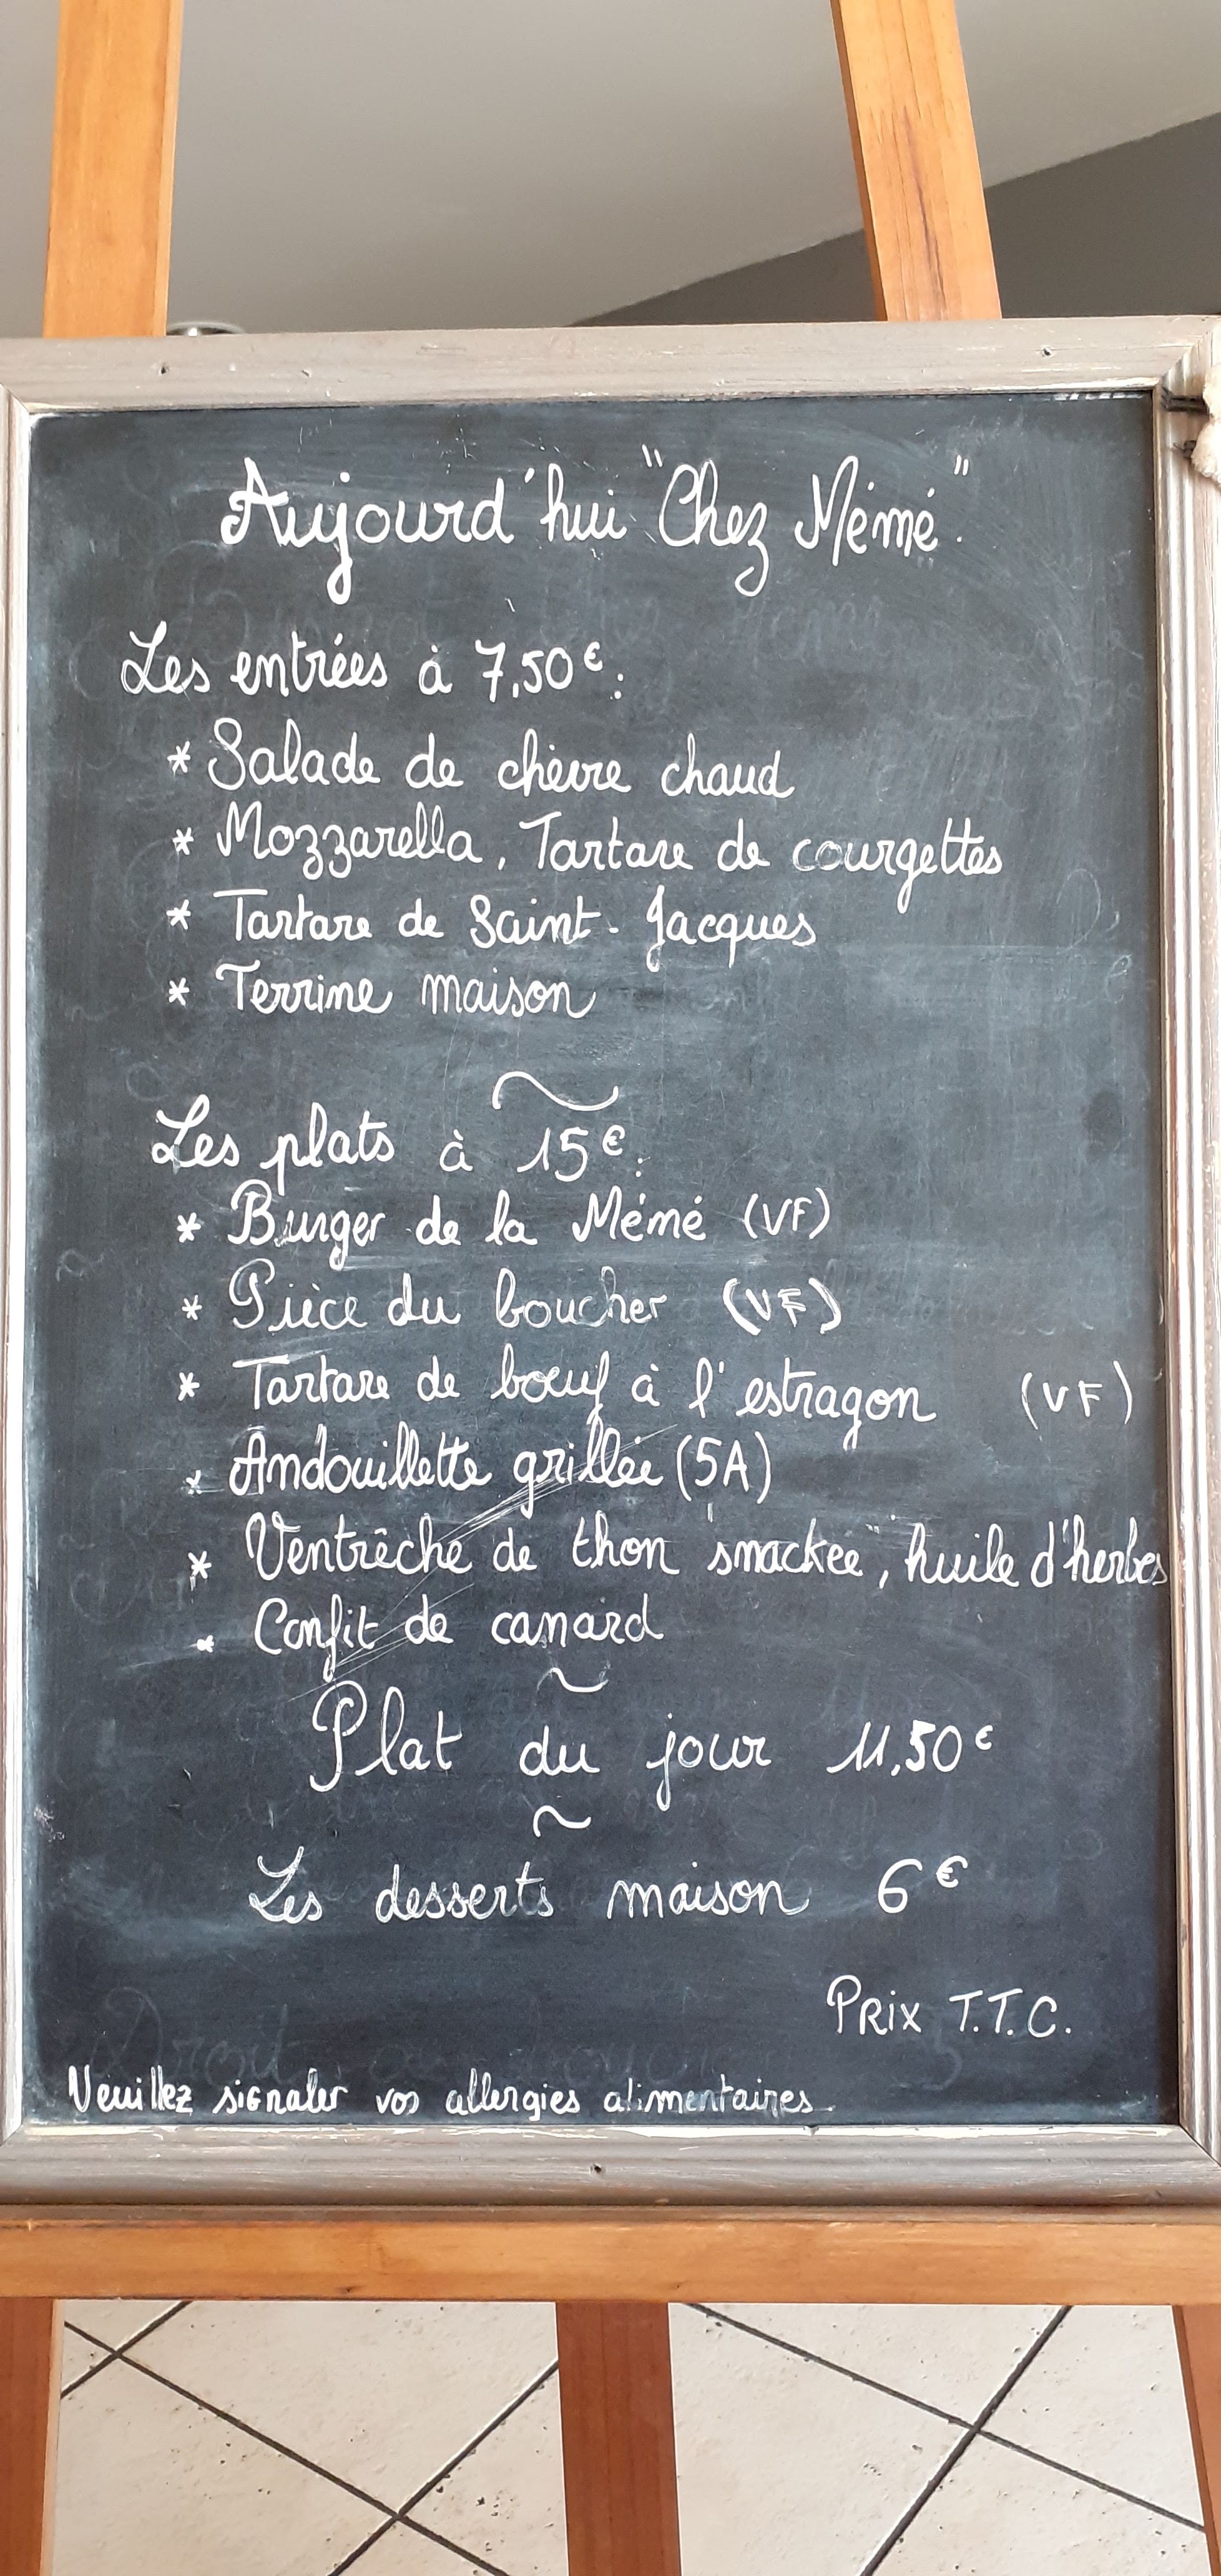 Aujourd'hui "Chez Mémé".
Les entrées à 7,50€ :
* Salade de chèvre chaud
* Mozzarella, Tartare de courgettes
* Tartare de Saint-Jacques
* Terrine maison
~
Les plats à 15€ :
* Burger de la Mémé (VF)
* Pièce du boucher (VF)
* Tartare de bœuf à l'estragon (VF)
* Andouillette grillée (5A)
* Ventrêche de thon "snackée", huile d'herbes
* Confit de canard
~
Plat du jour 11,50€
~
Les desserts maison 6€
PRix T.T.C.
Veuillez signaler vos allergies alimentaires